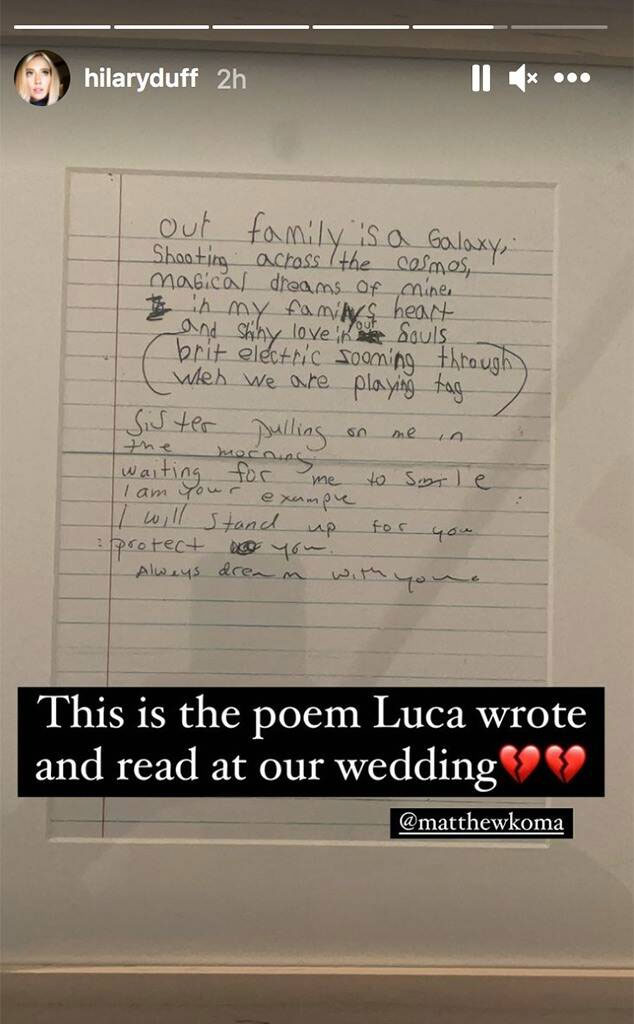 hilaryduff 2h
out family is a Galaxy,
Shooting across the cosmos,
magical dreams of mine.
in my familys heart
and shiny love in our Souls
brit electric sooming through
weh we are playing tag
Sister pulling on me in
the morning
waiting for me to smile
I am your example
I will stand up for you
protect you.
Always dream with you.
This is the poem Luca wrote
and read at our wedding💔💔
@matthewkoma